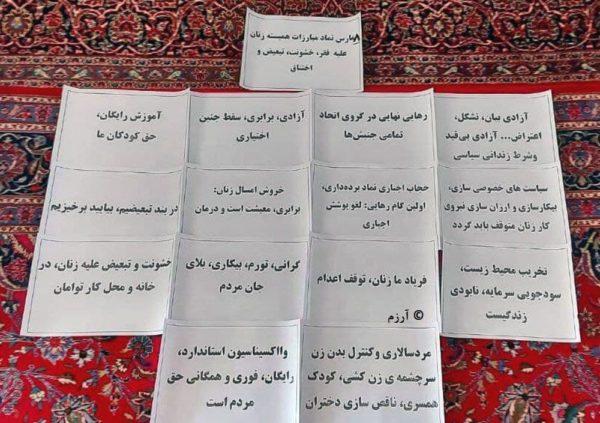 ۸مارس نماد مبارزات همیشه زنان
علیه فقر، خشونت، تبعیض و
اختناق
آزادی بیان، تشکل،
اعتراض... آزادی بی‌قید
وشرط زندانی سیاسی
رهایی نهایی در گروی اتحاد
تمامی جنبش‌ها
آزادی، برابری، سقط جنین
اختیاری
آموزش رایگان،
حق کودکان ما
سیاست های خصوصی سازی،
بیکارسازی و ارزان سازی نیروی
کار زنان متوقف باید گردد
حجاب اجباری نماد برده‌داری،
اولین گام رهایی: لغو پوشش
اجباری
خروش امسال زنان:
برابری، معیشت است و درمان
دربند تبعیضیم، بیایید برخیزیم
تخریب محیط زیست،
سودجویی سرمایه، نابودی
زندگیست
فریاد ما زنان، توقف اعدام
© آرزم
گرانی، تورم، بیکاری، بلای
جان مردم
خشونت و تبعیض علیه زنان، در
خانه و محل کار توامان
مردسالاری وکنترل بدن زن
سرچشمه ی زن کشی، کودک
همسری، ناقص سازی دختران
وااکسیناسیون استاندارد،
رایگان، فوری و همگانی حق
مردم است